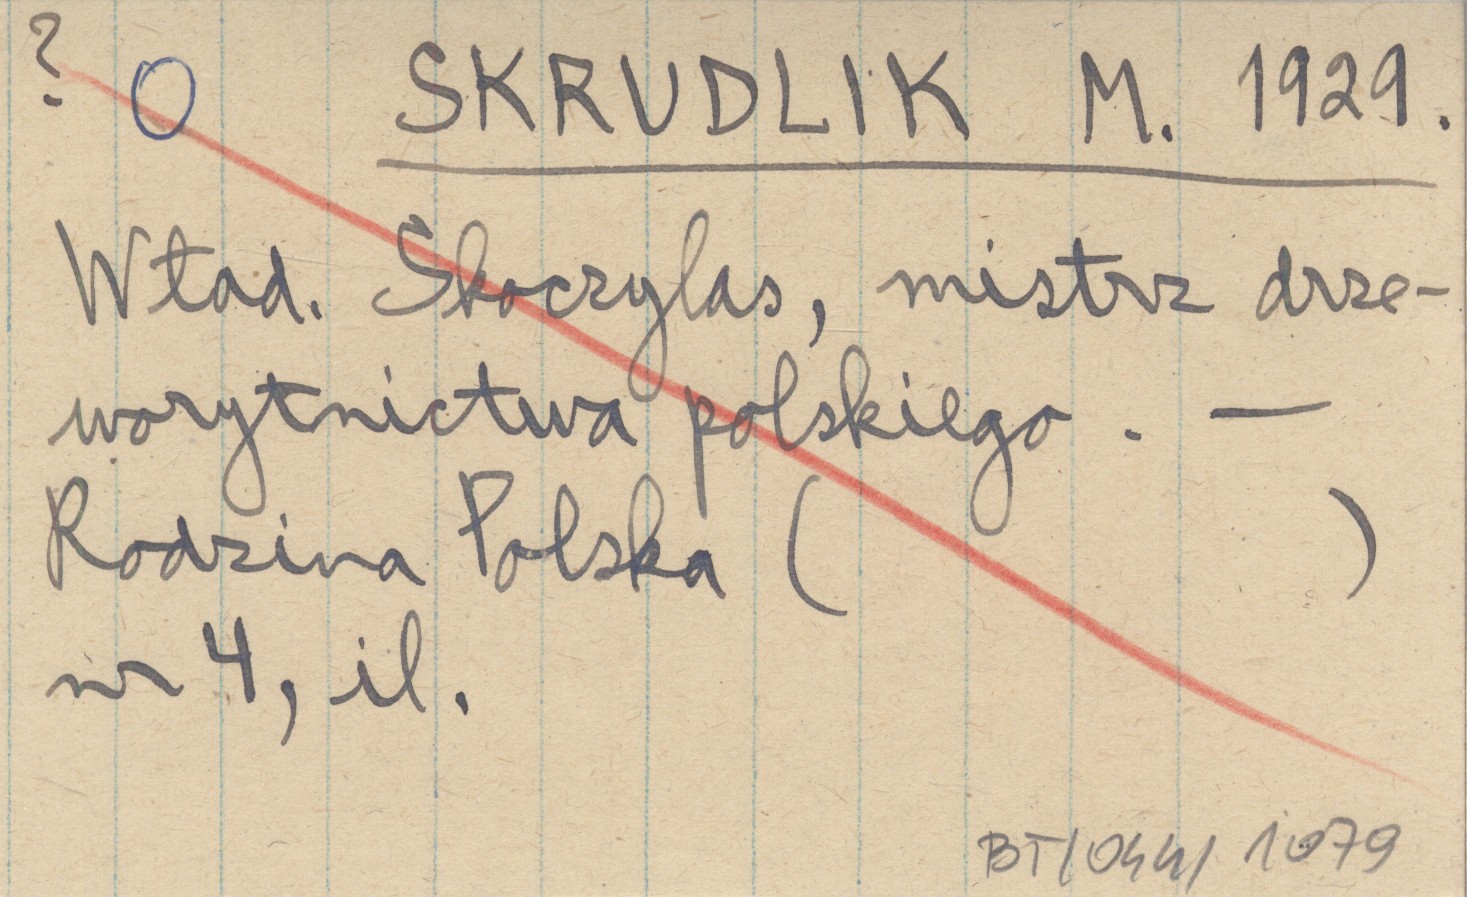 ? O SKRUDLIK M. 1929.
Wład. Skoczylas, mistrz drze-
worytnictwa polskiego. —
Rodzina Polska ( )
nr 4, il.
BT/044/1079